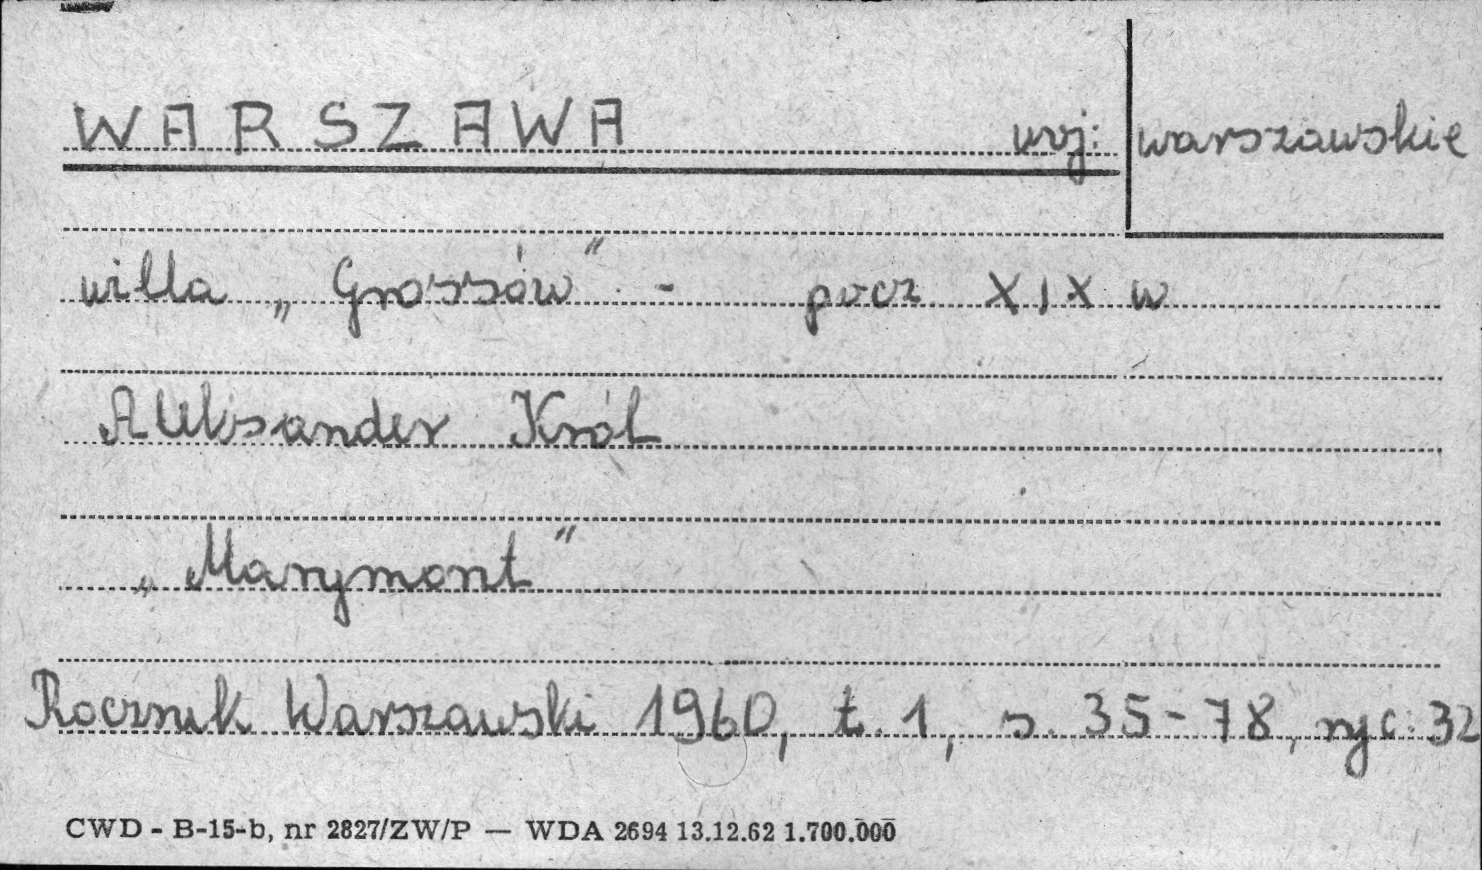 WARSZAWA woj: warszawskie
willa „Grossów" - pocz XIX w
Aleksander Król
„Marymont"
Rocznik Warszawski 1960, t. 1, s. 35-78, ryc. 32
CWD - B-15-b, nr 2827/ZW/P — WDA 2694 13.12.62 1.700.000